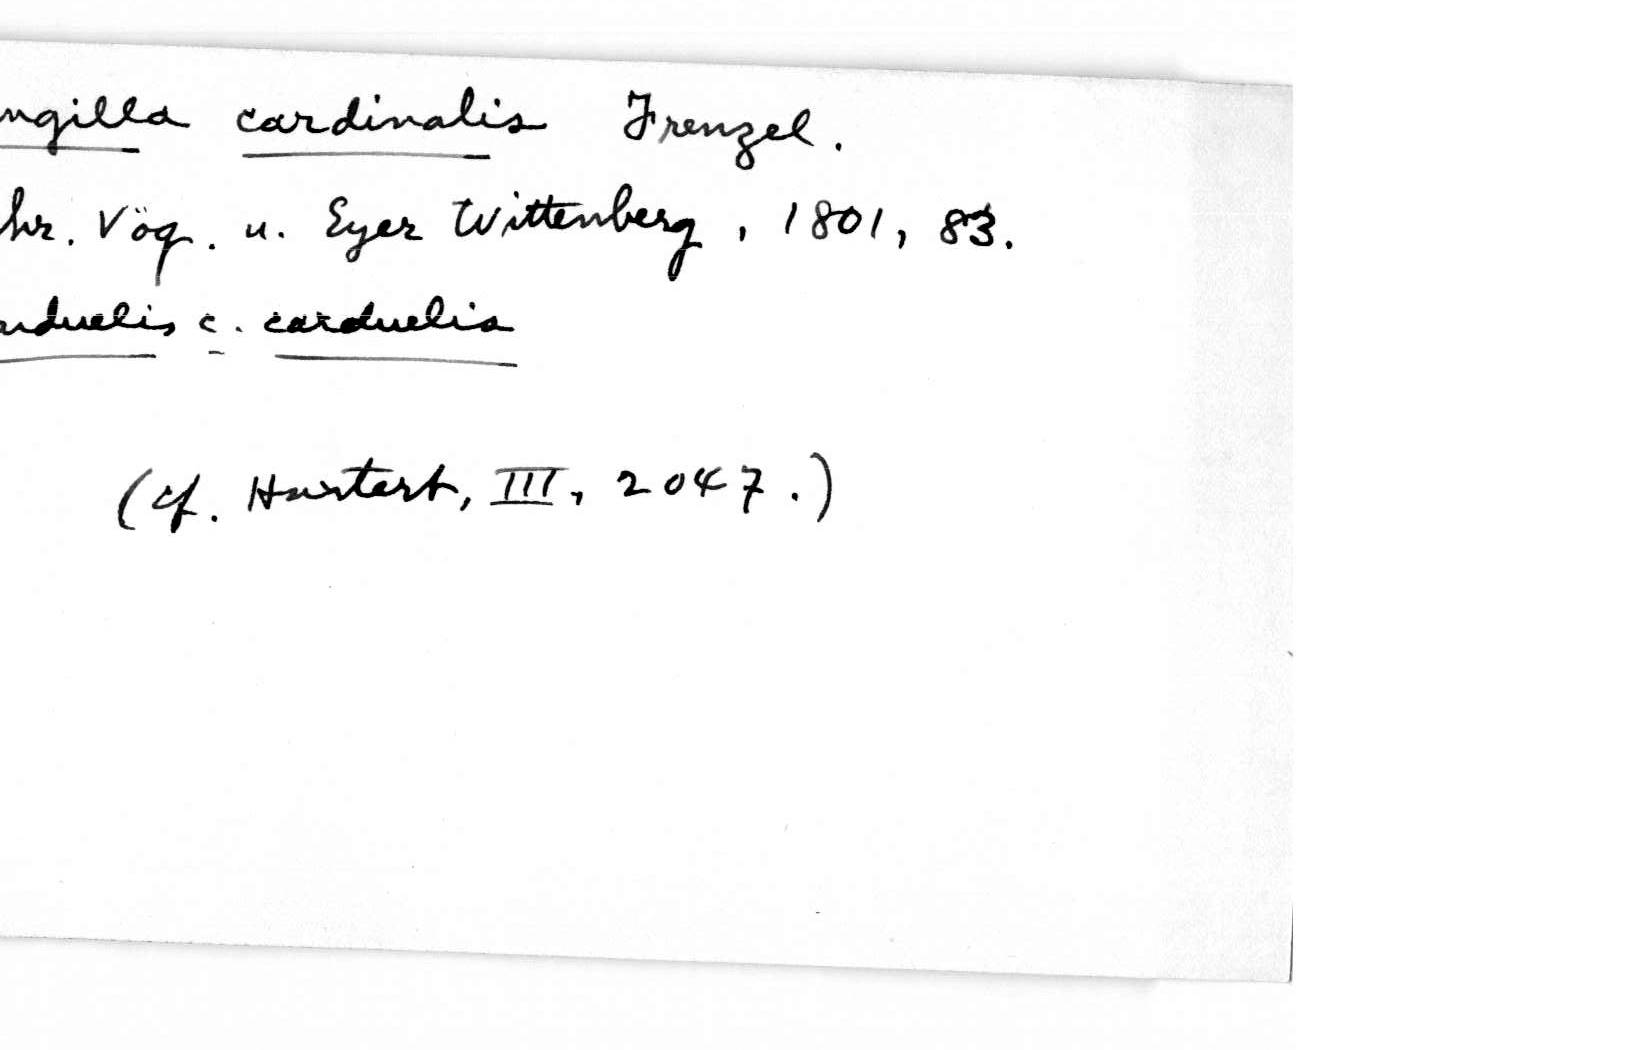 ngilla cardinalis Frenzel.
hr. Vög. u. Eyer Wittenberg, 1801, 83.
rduelis c. carduelis
(cf. Hartert, III, 2047.)